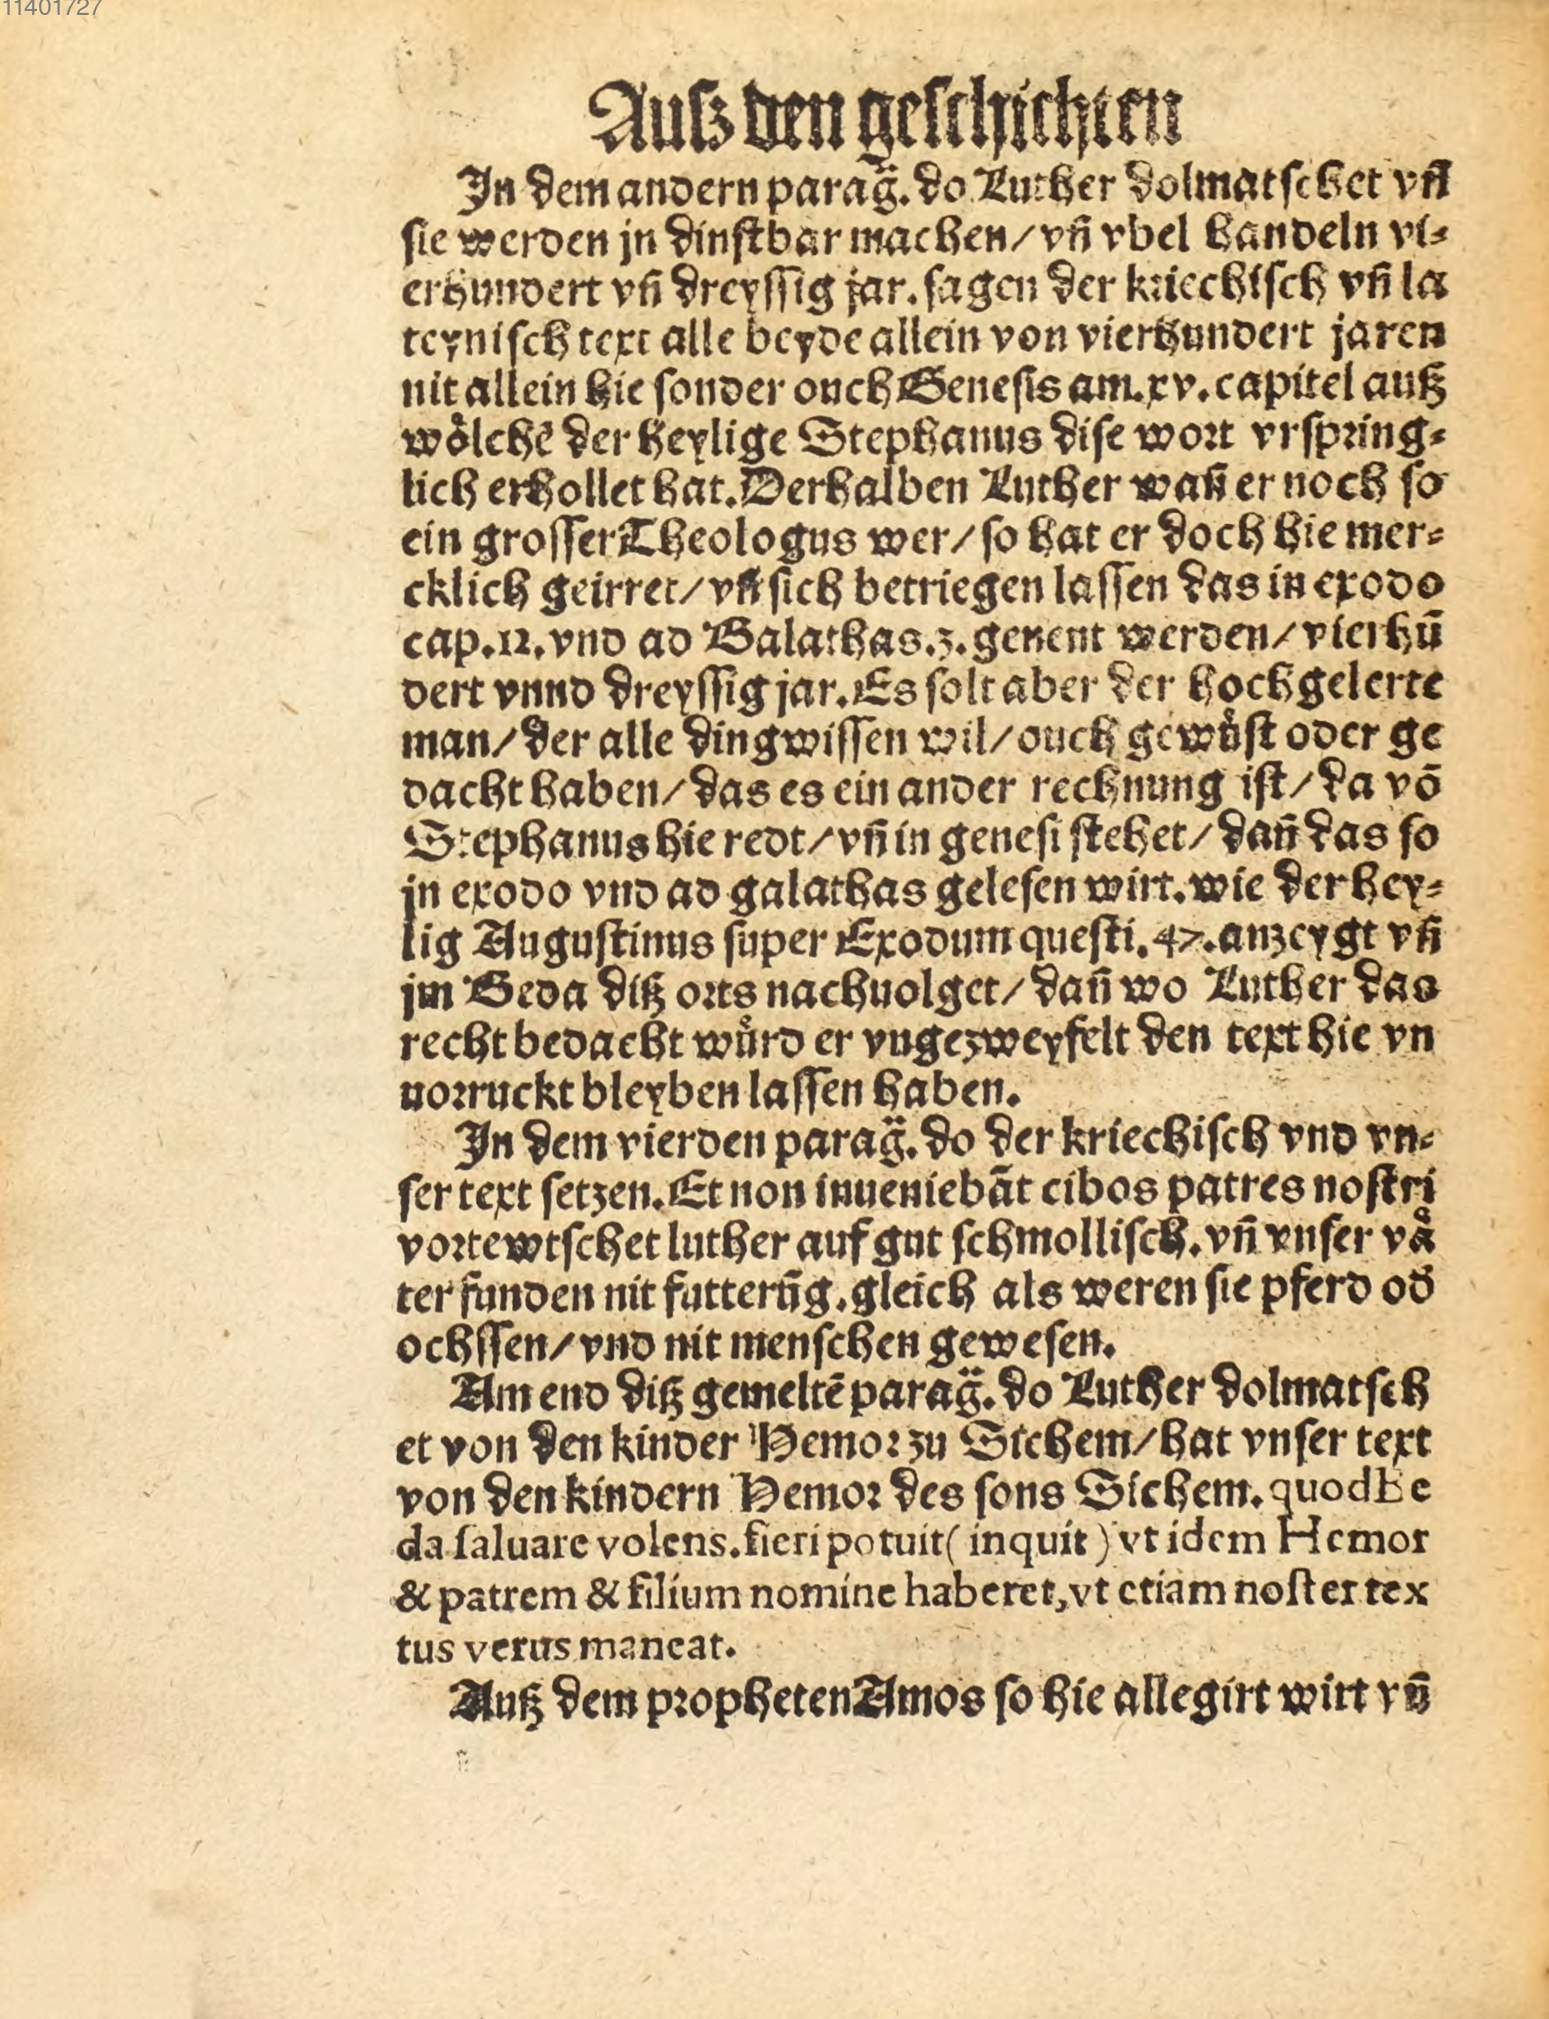 11401727
Ausz den geschichten
In dem andern parag̈. do Luther dolmatschet vñ
sie werden jn dinstbar machen/ vñ vbel handeln vi⸗
erhundert vñ dreyssig jar. sagen der kriechisch vñ la
teynisch text alle beyde allein von vierhundert jaren
nit allein hie sonder ouch Genesis am. xv. capitel auß
wölchē der heylige Stephanus dise wort vrspring⸗
lich erhollet hat. Derhalben Luther wañ er noch so
ein grosser Theologus wer/ so hat er doch hie mer⸗
cklich geirret/ vñ sich betriegen lassen das in exodo
cap. 12. vnd ad Galathas. 3. genent werden/ vierhū
dert vnnd dreyssig jar. Es solt aber der hochgelerte
man/ der alle ding wissen wil/ ouch gewůst oder ge
dacht haben/ das es ein ander rechnung ist/ da vō
Stephanus hie redt/ vñ in genesi stehet/ dañ das so
jn exodo vnd ad galathas gelesen wirt. wie der hey⸗
lig Augustinus super Exodum questi. 47. anzeygt vñ
jm Beda diß orts nachuolget/ dañ wo Luther das
recht bedacht wůrd er vngezweyfelt den text hie vn
uorruckt bleyben lassen haben.
In dem vierden parag̈. do der kriechisch vnd vn⸗
ser text setzen. Et non inueniebāt cibos patres nostri
vortewtschet luther auf gut schmollisch. vñ vnser vå
ter funden nit futterūg. gleich als weren sie pferd od̄
ochssen/ vnd nit menschen gewesen.
Am end diß gemeltē parag̈. do Luther dolmatsch
et von den kinder Hemor zu Sichem/ hat vnser text
von den kindern Hemor des sons Sichem. quod Be
da saluare volens. fieri potuit ( inquit ) vt idem Hemor
& patrem & filium nomine haberet, vt etiam noster tex
tus verus maneat.
Auß dem propheten Amos so hie allegirt wirt vñ